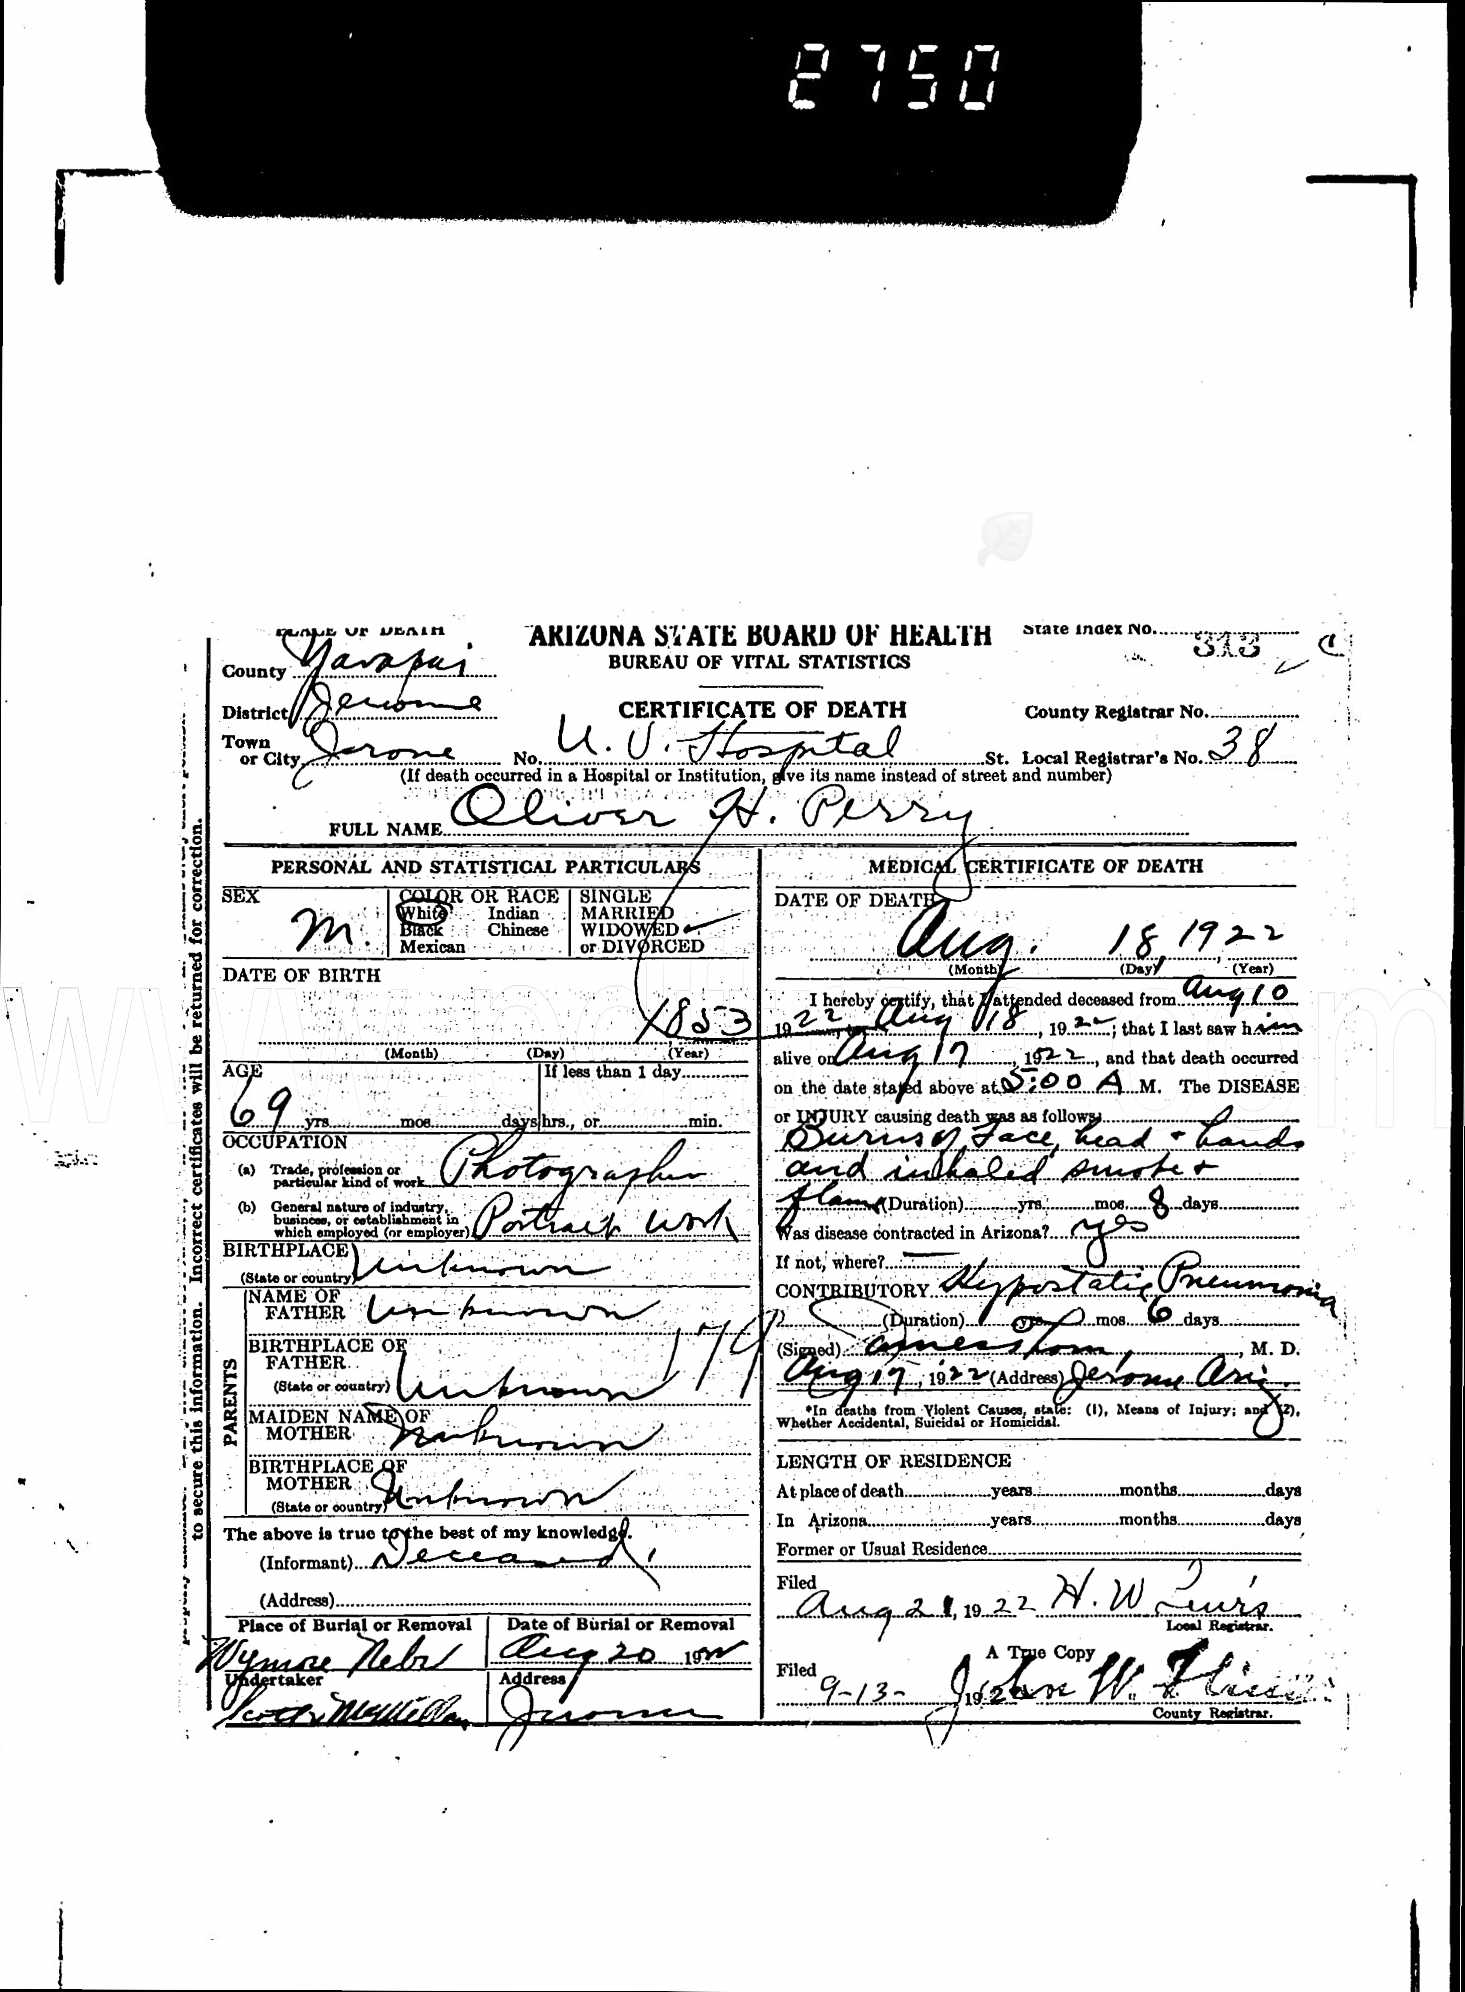 2750
PLACE OF DEATH
ARIZONA STATE BOARD OF HEALTH
BUREAU OF VITAL STATISTICS
State Index No. 313
County Yavapai
District Jerome
CERTIFICATE OF DEATH
County Registrar No.
Town or City Jerome No. U. V. Hospital St. Local Registrar's No. 38
(If death occurred in a Hospital or Institution, give its name instead of street and number)
FULL NAME Oliver H. Perry
to secure this information. Incorrect certificates will be returned for correction.
PERSONAL AND STATISTICAL PARTICULARS
SEX M.
COLOR OR RACE
White Indian
Black Chinese
Mexican
SINGLE
MARRIED
WIDOWED
or DIVORCED
DATE OF BIRTH
1853
(Month) (Day) (Year)
AGE
If less than 1 day
69 yrs. mos. days hrs., or min.
OCCUPATION
(a) Trade, profession or
particular kind of work Photographer
(b) General nature of industry,
business, or establishment in
which employed (or employer) Portrait work
BIRTHPLACE
(State or country) Unknown
PARENTS
NAME OF
FATHER Unknown
BIRTHPLACE OF
FATHER
(State or country) Unknown
179
MAIDEN NAME OF
MOTHER Unknown
BIRTHPLACE OF
MOTHER
(State or country) Unknown
The above is true to the best of my knowledge.
(Informant) Deceased
(Address)
Place of Burial or Removal
Wymore Nebr
Date of Burial or Removal
Aug 20 1922
Undertaker
Scott & McMillan
Address
Jerome
MEDICAL CERTIFICATE OF DEATH
DATE OF DEATH
Aug. 18, 1922
(Month) (Day) (Year)
I hereby certify, that I attended deceased from Aug 10
1922, to Aug 18, 1922; that I last saw him
alive on Aug 17, 1922, and that death occurred
on the date stated above at 5:00 A M. The DISEASE
or INJURY causing death was as follows:
Burns of Face, head + hands
and inhaled smoke +
flame (Duration) yrs. mos. 8 days
Was disease contracted in Arizona? yes
If not, where?
CONTRIBUTORY Hypostatic Pneumonia
(Duration) yrs. mos. 6 days
(Signed) M. D.
Aug 17, 1922 (Address) Jerome Ariz.
*In deaths from Violent Causes, state: (1), Means of Injury; and (2),
Whether Accidental, Suicidal or Homicidal.
LENGTH OF RESIDENCE
At place of death years months days
In Arizona years months days
Former or Usual Residence
Filed
Aug 21, 1922 H. W Lewis
Local Registrar.
A True Copy
Filed
9-13- 192 John W.
County Registrar.